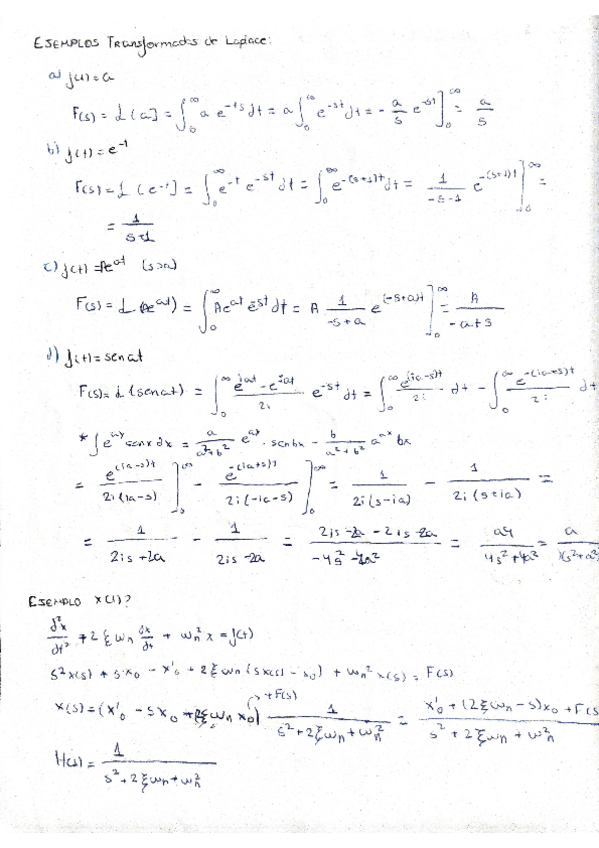 EJEMPLOS Transformadas de Laplace:
a) f(t) = a
F(s) = L[a] = ∫₀^∞ a e^(-ts) dt = a ∫₀^∞ e^(-st) dt = - a/s e^(-st) ]₀^∞ = a/s
b) f(t) = e^(-t)
F(s) = L[e^(-t)] = ∫₀^∞ e^(-t) e^(-st) dt = ∫₀^∞ e^(-(s+1)t) dt = 1/(-s-1) e^(-(s+1)t) |₀^∞ =
= 1/(s+1)
c) f(t) = Ae^(at) (s>a)
F(s) = L(Ae^(at)) = ∫₀^∞ Ae^(at) e^(-st) dt = A 1/(-s+a) e^((-s+a)t) ]₀^∞ = A/(-a+s)
d) f(t) = sen at
F(s) = L(sen at) = ∫₀^∞ (e^(iat) - e^(-iat))/2i e^(-st) dt = ∫₀^∞ e^((ia-s)t)/2i dt - ∫₀^∞ e^(-(ia+s)t)/2i dt
* ∫ e^(ax) sen x dx = a/(a²+b²) e^(ax) · sen bx - b/(a²+b²) a^(ax) bx
= e^((ia-s)t)/(2i(ia-s)) ]₀^∞ - e^(-(ia+s)t)/(2i(-ia-s)) ]₀^∞ = 1/(2i(s-ia)) - 1/(2i(s+ia)) =
= 1/(2is+2a) - 1/(2is-2a) = (2is-2a-2is-2a)/(-4s²-4a²) = a4/(4s²+4a²) = a/(s²+a²)
EJEMPLO X(t)?
d²x/dt² + 2ξωn dx/dt + ωn² x = f(t)
s²x(s) + s·x₀ - x'₀ + 2ξωn (s x(s) - x₀) + ωn² x(s) = F(s)
+F(s)
x(s) = (x'₀ - s x₀ + 2ξωn x₀) 1/(s²+2ξωn+ωn²) = (x'₀ + (2ξωn - s)x₀ + F(s/(s² + 2ξωn + ωn²)
H(s) = 1/(s² + 2ξωn + ωn²)